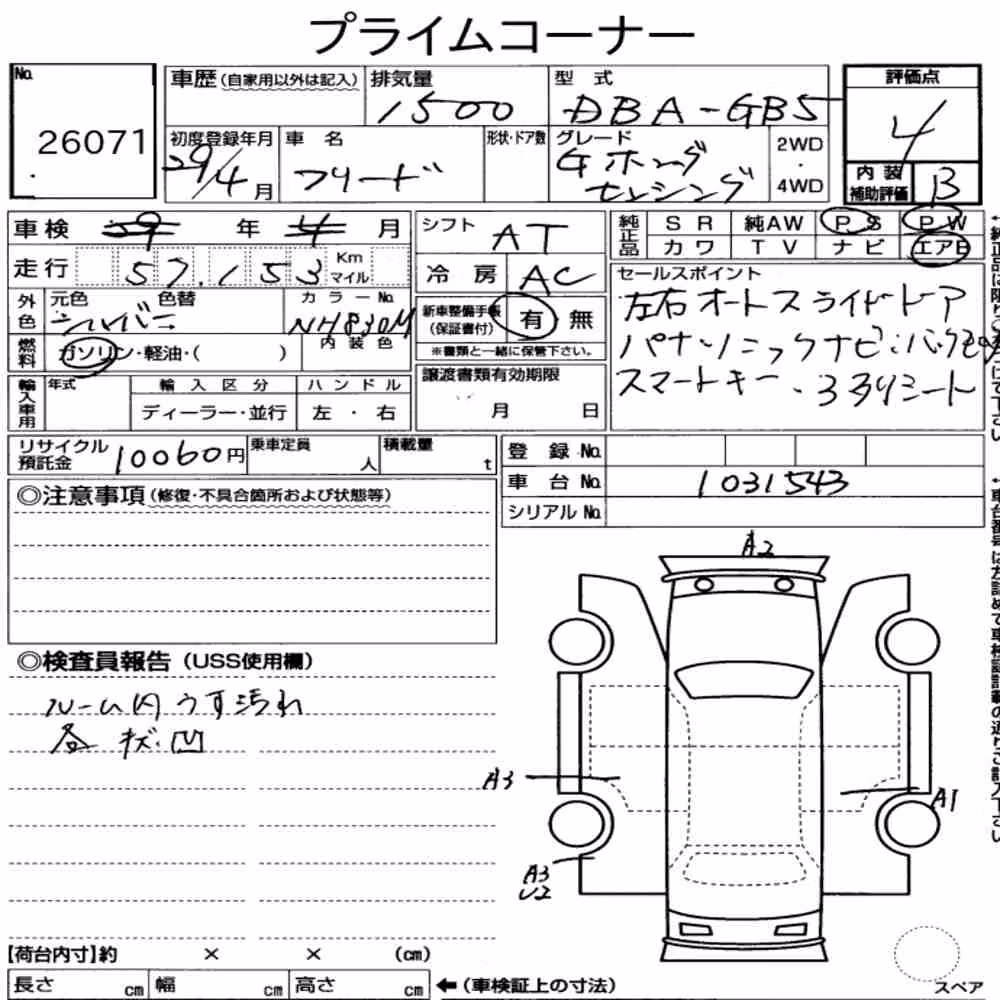 プライムコーナー
No.
26071
車歴(自家用以外は記入)
排気量
1500
型 式
DBA-GB5
評価点
4
内 装
補助評価
B
初度登録年月
29/4月
車 名
フリード
形状・ドア数
グレード
Gホンダ
センシング
2WD
・
4WD
車検 年 月
シフト
AT
純正品
SR 純AW PS PW
カワ TV ナビ エアB
走行
57,153
Km
マイル
冷房
AC
セールスポイント
左右オートスライドドア
パナソニックナビ・バックモ
スマートキー・3列シート
外色
元色 色替
シルバー
カラーNo.
NH830M
内装色
新車整備手帳
(保証書付)
有 無
※書類と一緒に保管下さい。
燃料
ガソリン・軽油・( )
輸入車用
年式
輸入区分
ディーラー・並行
ハンドル
左・右
譲渡書類有効期限
月 日
リサイクル
預託金
10060円
乗車定員
人
積載量
t
登 録 No.
車 台 No.
1031543
シリアル No.
◎注意事項(修復・不具合箇所および状態等)
◎検査員報告(USS使用欄)
ルーム内うす汚れ
各キズ・凹
A2
A3
A1
A3
U2
【荷台内寸】約 × × (cm)
長さ cm 幅 cm 高さ cm
←(車検証上の寸法)
スペア